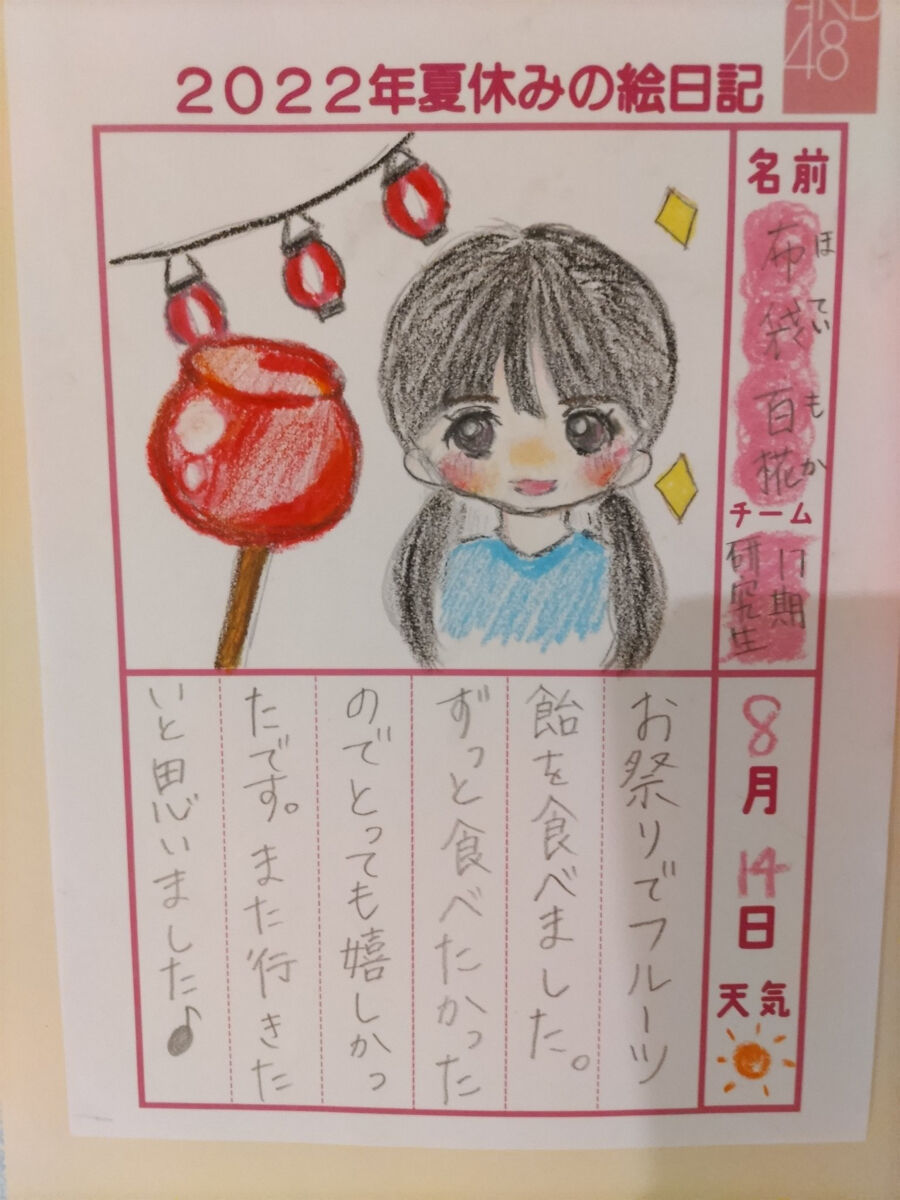 AKB
48
2022年夏休みの絵日記
名前
布袋百椛
ほていもか
チーム
17期
研究生
8月14日
天気
お祭りでフルーツ
飴を食べました。
ずっと食べたかった
のでとっても嬉しかっ
たです。また行きた
いと思いました♪